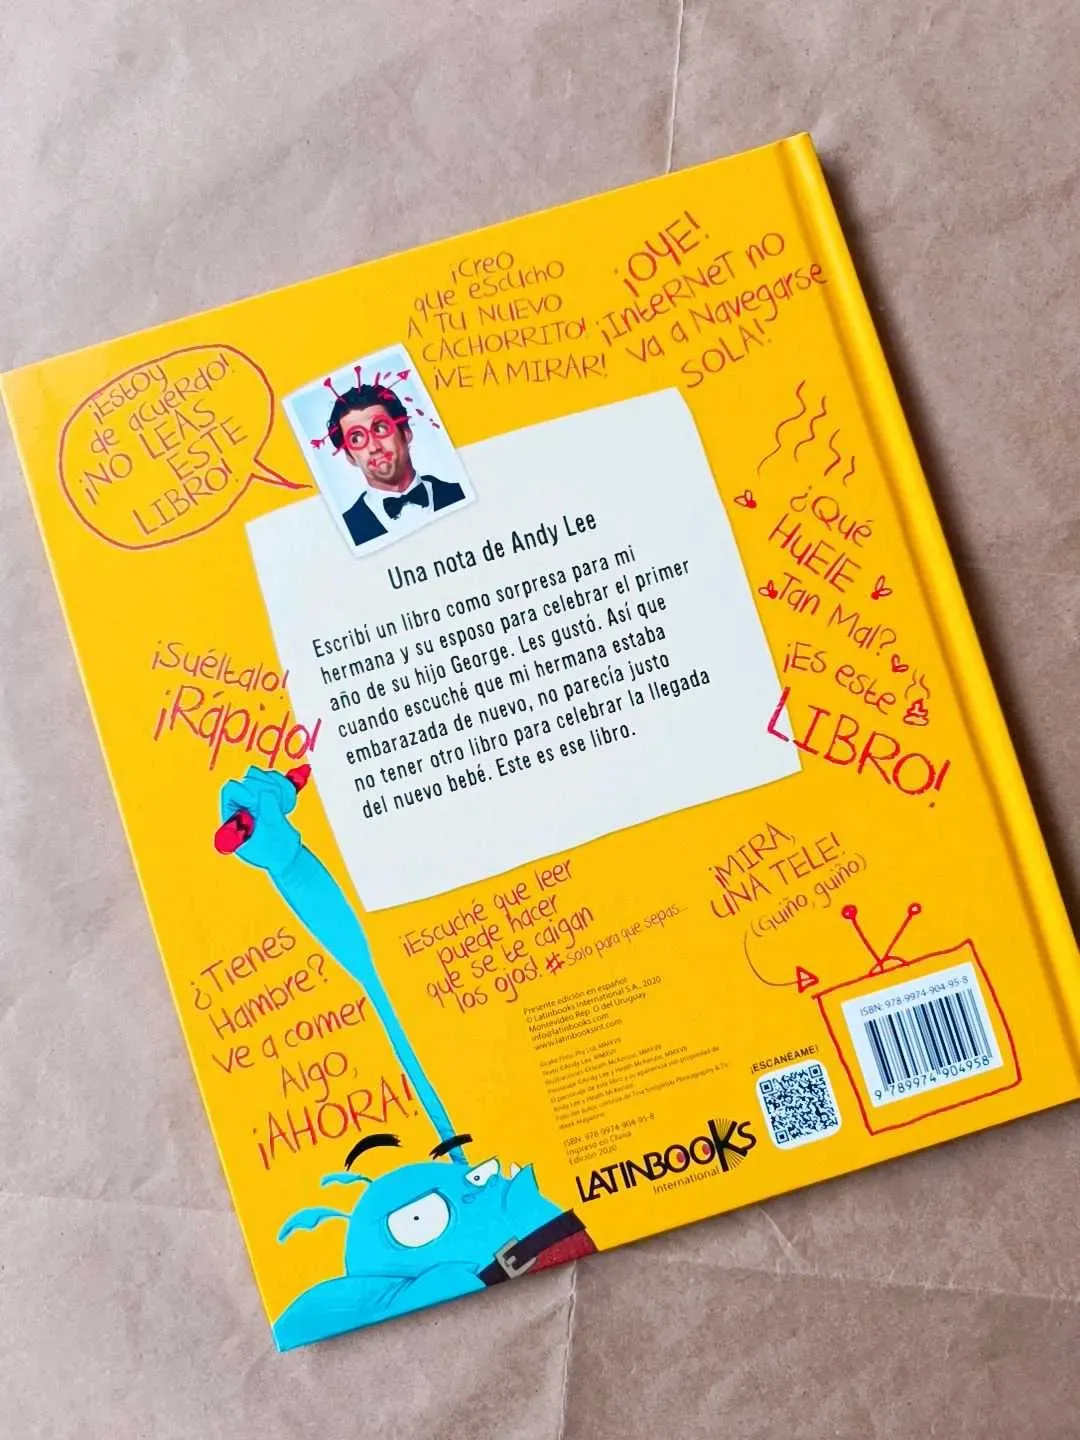 ¡Creo
que escucho
A TU NUEVO
CACHORRITO!
¡VE A MIRAR!
¡OYE!
¡InteRNeT no
va a Navegarse
SOLA!
¡EstOy
de acuerdo!
¡NO LEAS
ESTE
LIBRO!
Una nota de Andy Lee
Escribí un libro como sorpresa para mi
hermana y su esposo para celebrar el primer
año de su hijo George. Les gustó. Así que
cuando escuché que mi hermana estaba
embarazada de nuevo, no parecía justo
no tener otro libro para celebrar la llegada
del nuevo bebé. Este es ese libro.
¿Qué
HuElE
Tan Mal?
¡Es este
LIBRO!
¡Suéltalo!
¡Rápido!
¿Tienes
Hambre?
ve a comer
Algo,
¡AHORA!
¡Escuché que leer
puede hacer
que se te caigan
los ojos! #solo para que sepas...
¡MIRA,
UNA TELE!
(Guiño, guiño)
Presente edición en español
© Latinbooks International S.A., 2020
Montevideo Rep. O del Uruguay
info@latinbooks.com
www.latinbooksint.com
ISBN: 978-9974-904-95-8
Impreso en China
Edición 2020
LATINBOOKS
International
¡ESCANÉAME!
ISBN: 978-9974-904-95-8
9 789974 904958